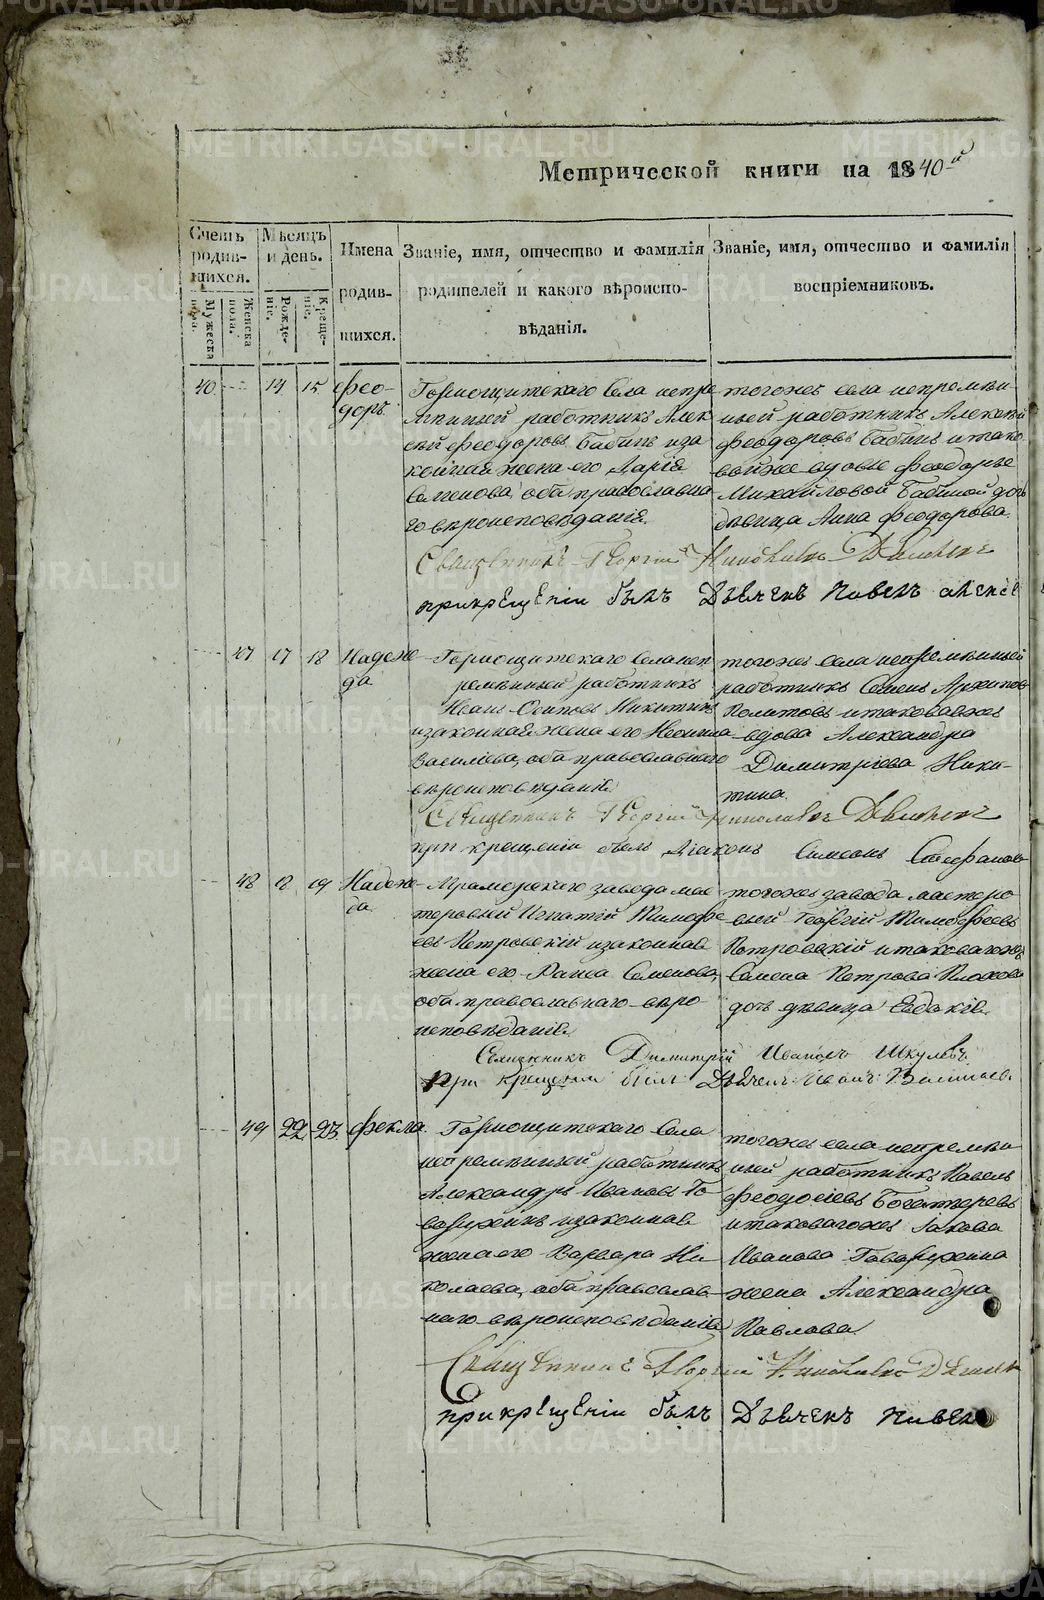 Метрической книги на 1840-й
Счетъ родив-шихся.
Мужеска пола.
Женска пола.
Мѣсяцъ и день.
Рожде-ніе.
Креще-ніе.
Имена родив-шихся.
Званіе, имя, отчество и фамилія
родителей и какого вѣроиспо-
вѣданія.
Званіе, имя, отчество и фамилія
воспріемниковъ.
40 14 15 Фео-
доръ
Горнощитскаго села непре
мѣнный работникъ Алек
сѣй Феодоровъ Бабинъ и за
конная жена его Дарія
Семенова, оба православна
го вѣроисповѣданія.
тогоже села непремѣн
ный работникъ Алексѣй
Феодоровъ Бабинъ и тако
войже вдовы Феодоры
Михайловой Бабиной дочь
дѣвица Анна Феодорова.
Священникъ Георгій Николаевъ
при крещеніи былъ Дьячекъ Павелъ Алексѣ
47 17 18 Надеж
да
Горнощитскаго села неп
ремѣнный работникъ
Иванъ Осиповъ Никитинъ
и законная жена его
Василіева, оба православнаго
вѣроисповѣданія
тогоже села непремѣнный
работникъ Семенъ Архипов
и таковаяже
вдова Александра
Димитріева Ники-
тина.
Священникъ Георгій Николаевъ
при крещеніи былъ Діаконъ Симеонъ Стефановъ
48 18 19 Надеж-
да
Мраморскаго завода мас
теровый Игнатій Тимофе
евъ Петровскій и законная
жена его Раиса Семенова,
оба православнаго вѣро
исповѣданія
тогоже завода мастеро
вый Георгій Тимофеевъ
Петровскій и таковагоже
Семена Петрова
дочь дѣвица Евдокія.
Священникъ Димитрій Ивановъ
При крещеніи былъ Дьячекъ Иванъ
49 22 23 Фекла
Горнощитскаго села
непремѣнный работникъ
Александръ Ивановъ Го
ворухинъ и законная
жена его Варвара Ни
колаева, оба православ
наго вѣроисповѣданія
тогоже села непремѣн
ный работникъ Павелъ
Феодосіевъ Богатыревъ
и таковагоже Іакова
Иванова Говорухина
жена Александра
Павлова
Священникъ Георгій Николаевъ
при крещеніи былъ Дьячекъ Павелъ
METRIKI.GASO-URAL.RU